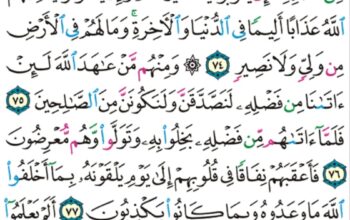 ٱللَّهُ عَذَابًا أَلِيمًا فِي ٱلدُّنْيَا وَٱلْأَخِرَةِ ۚ وَمَا لَهُمْ فِي ٱلْأَرْضِ
مِن وَلِيٍّ وَلَا نَصِيرٍ ٧٤ ۞ وَمِنْهُم مَّنْ عَٰهَدَ ٱللَّهَ لَئِنْ
ءَاتَىٰنَا مِن فَضْلِهِۦ لَنَصَّدَّقَنَّ وَلَنَكُونَنَّ مِنَ ٱلصَّٰلِحِينَ ٧٥
فَلَمَّآ ءَاتَىٰهُم مِّن فَضْلِهِۦ بَخِلُوا۟ بِهِۦ وَتَوَلَّوا۟ وَّهُم مُّعْرِضُونَ
٧٦ فَأَعْقَبَهُمْ نِفَاقًا فِي قُلُوبِهِمْ إِلَىٰ يَوْمِ يَلْقَوْنَهُۥ بِمَآ أَخْلَفُوا۟
ٱللَّهَ مَا وَعَدُوهُ وَبِمَا كَانُوا۟ يَكْذِبُونَ ٧٧ أَلَمْ يَعْلَمُوٓا۟